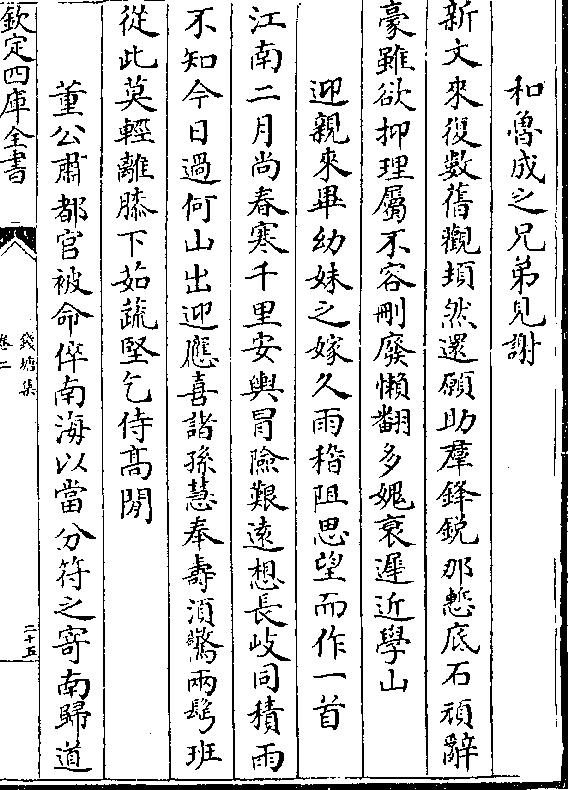 和魯成之兄弟見謝
新文來復數舊觀頍然還願助羣鋒銳那慙底石頑辭
豪雖欲抑理屬不容刪廢懶翻多媿衰遲近學山
迎親來畢幼妹之嫁久雨稽阻思望而作一首
江南二月尚春寒千里安輿冒險艱遠想長岐同積雨
不知今日過何山出迎應喜諸孫慧奉壽須驚兩鬢班
從此莫輕離膝下茹蔬堅乞侍髙閒
董公肅都官被命倅南海以當分符之寄南歸道
欽定四庫全書
錢塘集
卷二
二十五